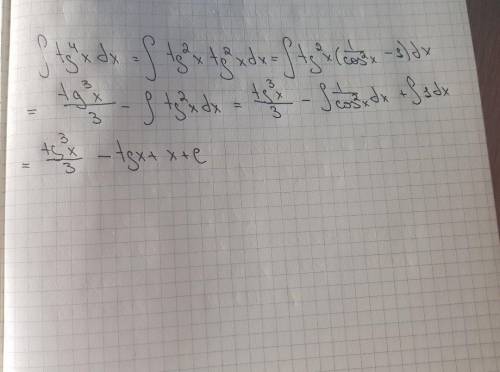 ∫ tg⁴x dx = ∫ tg²x tg²x dx = ∫ tg²x (1/cos²x − 1) dx
= tg³x/3 − ∫ tg²x dx = tg³x/3 − ∫ 1/cos²x dx + ∫ 1 dx
= tg³x/3 − tgx + x + c